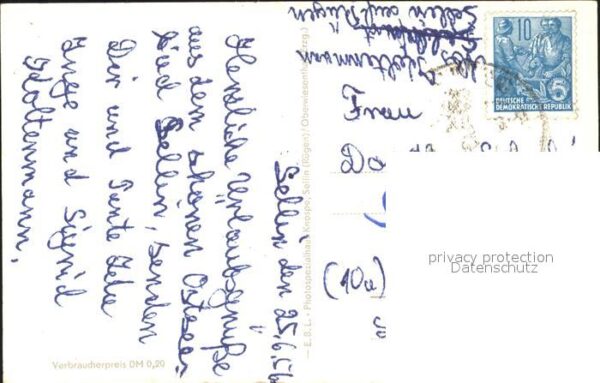 Sellin den 25.6.56
Herzliche Urlaubsgrüße
aus dem schönen Ostsee=
bad Sellin, senden
Dir und Tante Ida
Inge und Sigrid
Holtenmann.
Sellin auf Rügen
Frau
Do
(10a)
10
5
DEUTSCHE
DEMOKRATISCHE REPUBLIK
— E.B.L. - Photospezialhaus Knospe, Sellin (Rügen) / Oberwiesenthal (Erzg.)
Verbraucherpreis DM 0,20
privacy protection
Datenschutz